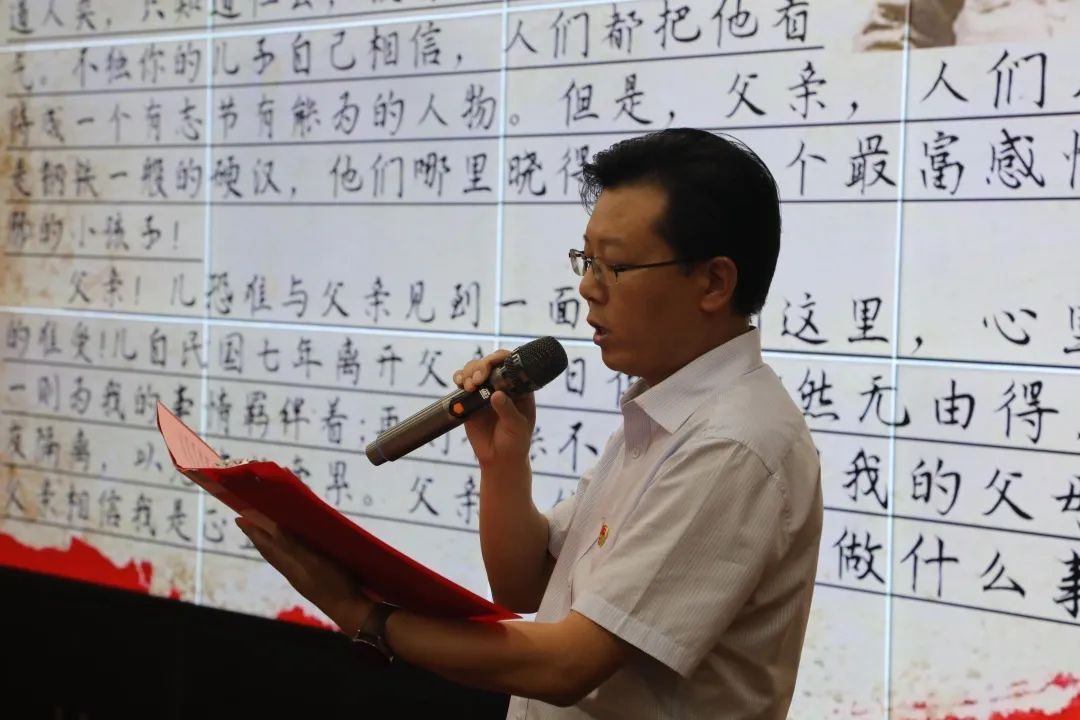 道人类，只知道
气。不独你的儿子自己相信，人们都把他看
待成一个有志节有能为的人物。但是，父亲，人们
是钢铁一般的硬汉，他们哪里晓得 个最富感情
的小孩子！
父亲！儿恐难与父亲见到一面 这里，心里
的难受！儿自民国七年离开父 日 然无由得
一则为我的事情羁绊着；再 不 我的父母
隔离，以 果。父亲 做什么事
父亲相信我是心